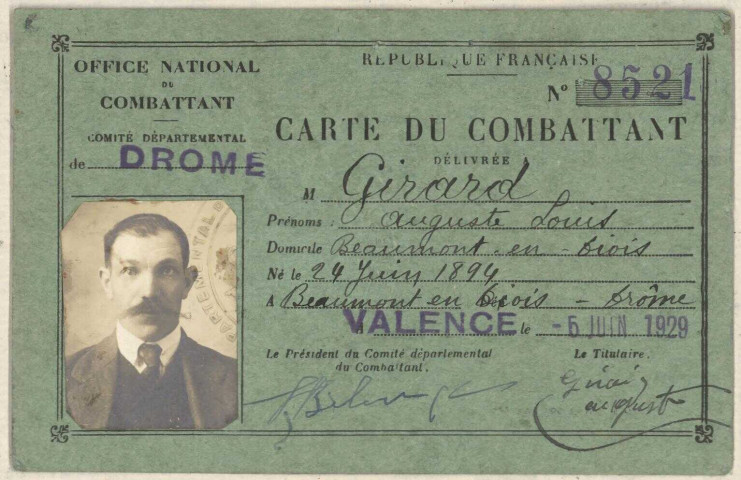 OFFICE NATIONAL
DU
COMBATTANT
COMITÉ DÉPARTEMENTAL
de DROME
RÉPUBLIQUE FRANÇAISE
N° 8521
CARTE DU COMBATTANT
DÉLIVRÉE
M Girard
Prénoms : Auguste Louis
Domicile Beaumont-en-Diois
Né le 24 Juin 1894
A Beaumont en Diois - Drôme
VALENCE le -6 JUIN 1929
Le Président du Comité départemental
du Combattant.
Le Titulaire.
Girard
August